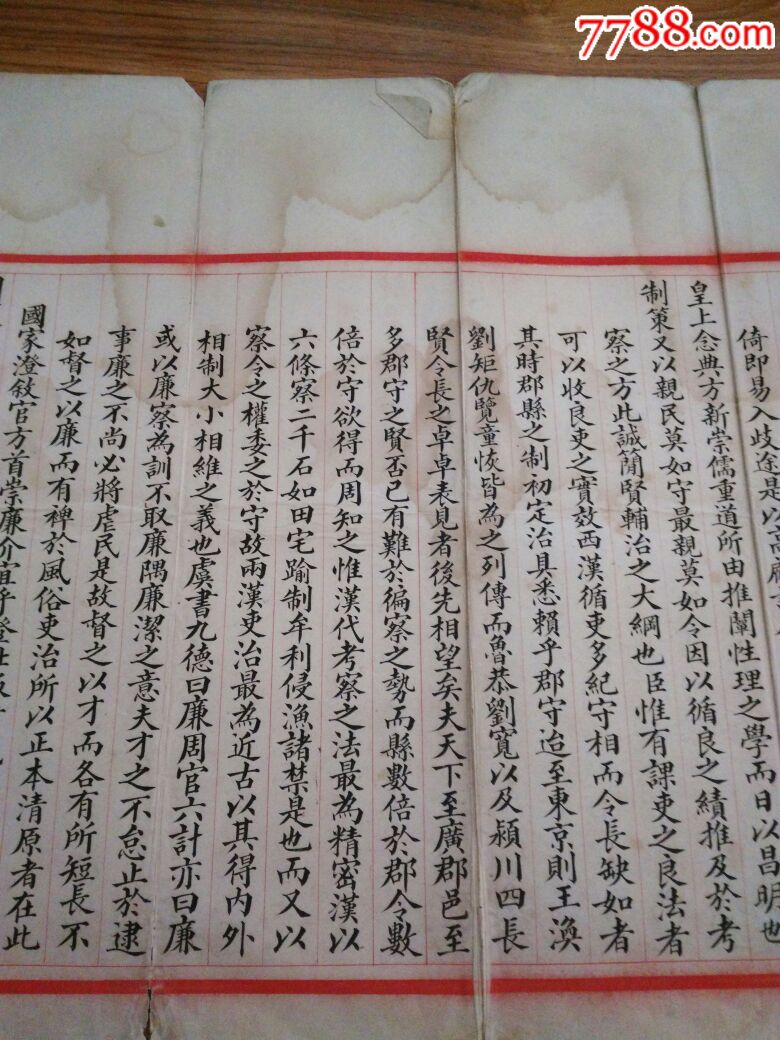 7788.com
倚即易入歧途是以
之學而日以昌明也
皇上念典方新崇儒重道所由推闡性理
制策又以親民莫如守最親莫如令因以循良之績推及於考
察之方此誠簡賢輔治之大綱也臣惟有課吏之良法者
可以收良吏之實效西漢循吏多紀守相而令長缺如者
其時郡縣之制初定治具悉賴乎郡守迨至東京則王渙
劉矩仇覽童恢皆為之列傳而魯恭劉寬以及潁川四長
賢令長之卓卓表見者後先相望矣夫天下至廣郡邑至
多郡守之賢否已有難於徧察之勢而縣數倍於郡令數
倍於守欲得而周知之惟漢代考察之法最為精密漢以
六條察二千石如田宅踰制牟利侵漁諸禁是也而又以
察令之權委之於守故兩漢吏治最為近古以其得內外
相制大小相維之義也虞書九德曰廉周官六計亦曰廉
或以廉察為訓不取廉隅廉潔之意夫才之不怠止於逮
事廉之不尚必將虐民是故督之以才而各有所短長不
如督之以廉而有裨於風俗吏治所以正本清原者在此
國家澄敘官方首崇廉介宜乎